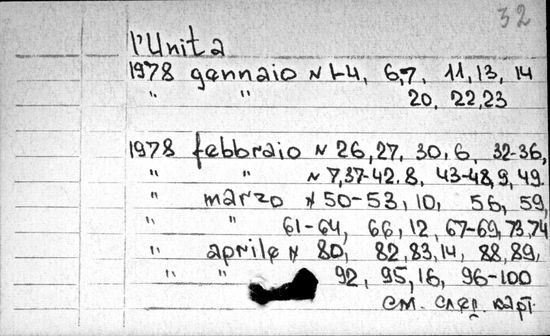 32
l'Unita
1978 gennaio N 1-4, 6,7, 11,13, 14
" " 20, 22,23
1978 febbraio N 26,27, 30,6, 32-36,
" " N 7,37-42.8, 43-48,9, 49.
" marzo N 50-53, 10, 56, 59,
" " 61-64, 66, 12, 67-69,73,74
" aprile N 80, 82,83,14, 88,89,
" " 92, 95,16, 96-100
см. след. карт.